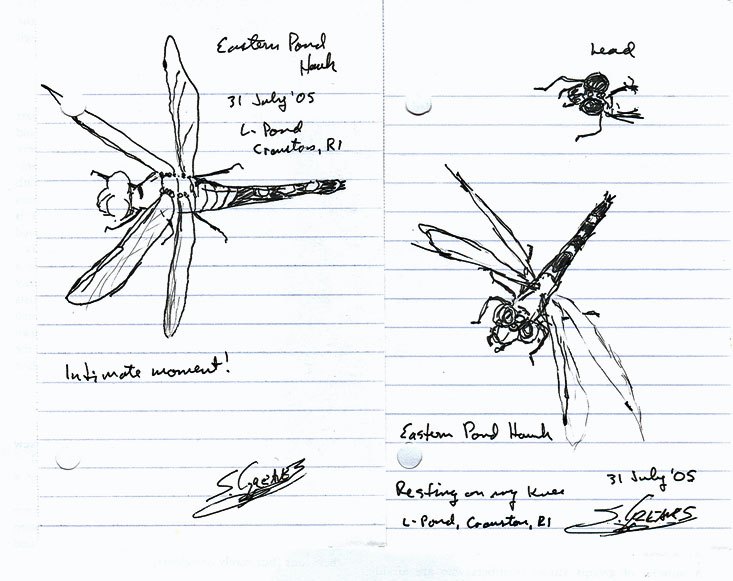 Eastern Pond
Hawk
31 July '05
L-Pond
Cranston, RI
Intimate moment!
S. Greaves
Head
Eastern Pond Hawk
Resting on my knee
31 July '05
L-Pond, Cranston, RI
S. Greaves